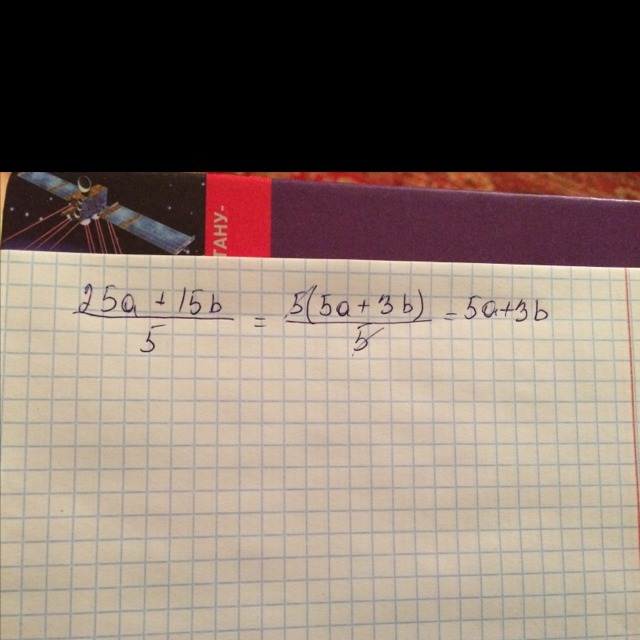 ТАНУ-
25a + 15b / 5 = 5(5a + 3b) / 5 = 5a+3b